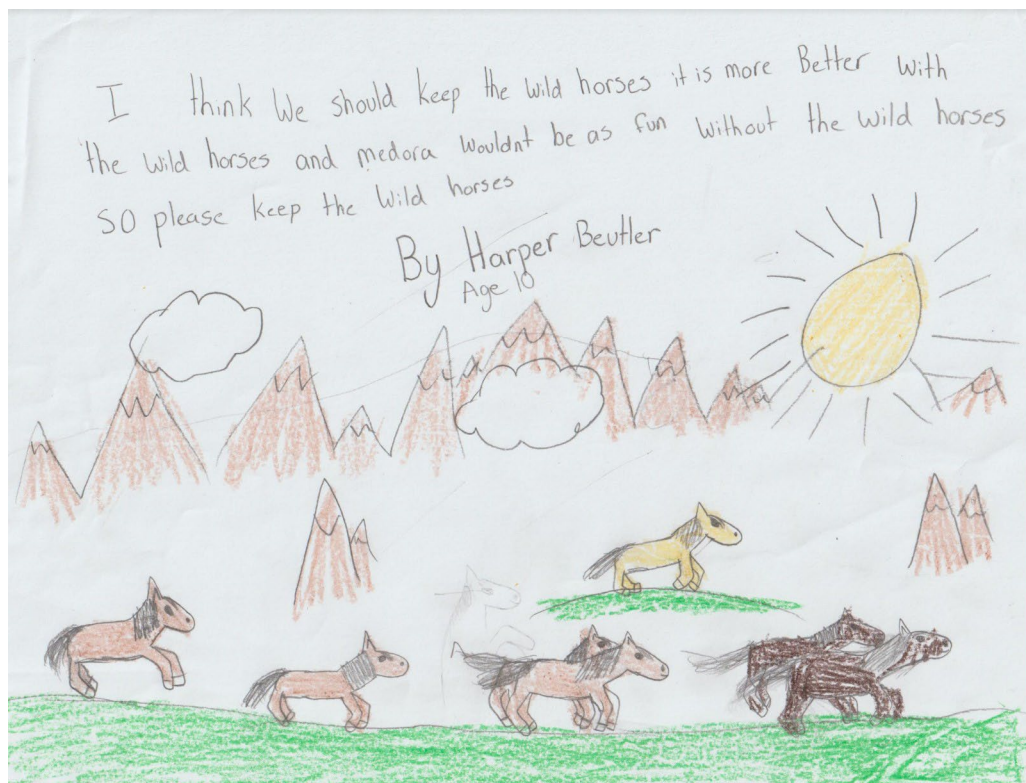 I think We should keep the wild horses it is more Better with
the wild horses and medora wouldnt be as fun without the wild horses
so please keep the wild horses
By Harper Beutler
Age 10